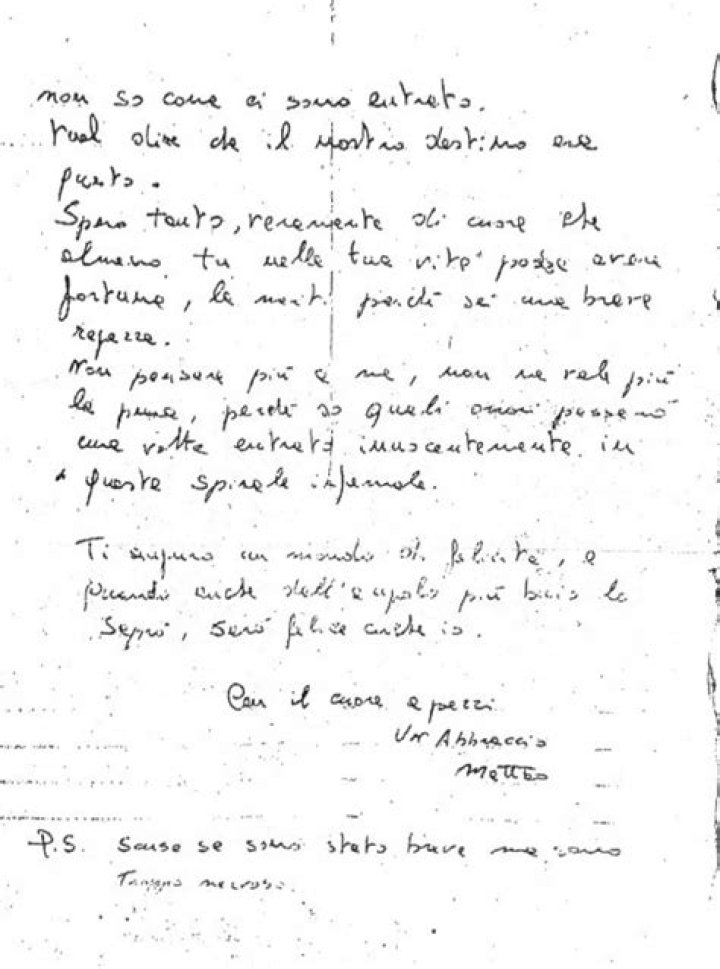 non so come ci sono entrato.
Vuol dire che il nostro destino era
questo.
Spero tanto, veramente di cuore che
almeno tu nella tua vita possa avere
fortuna, la meriti perchè sei una brava
ragazza.
Non pensare più a me, non ne vale più
la pena, perchè so quali orrori passerò
una volta entrato innocentemente in
questa spirale infernale.
Ti auguro un mondo di felicità, e
quando anche dall'angolo più buio lo
saprò, sarò felice anche io.
Con il cuore a pezzi
Un Abbraccio
Matteo
P.S. Scusa se sono stato breve ma sono
Troppo nervoso.